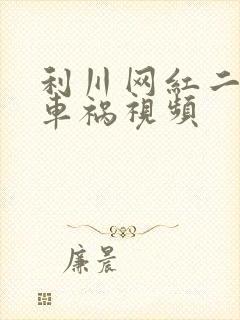 利川网红二
车祸視頻
廉晨